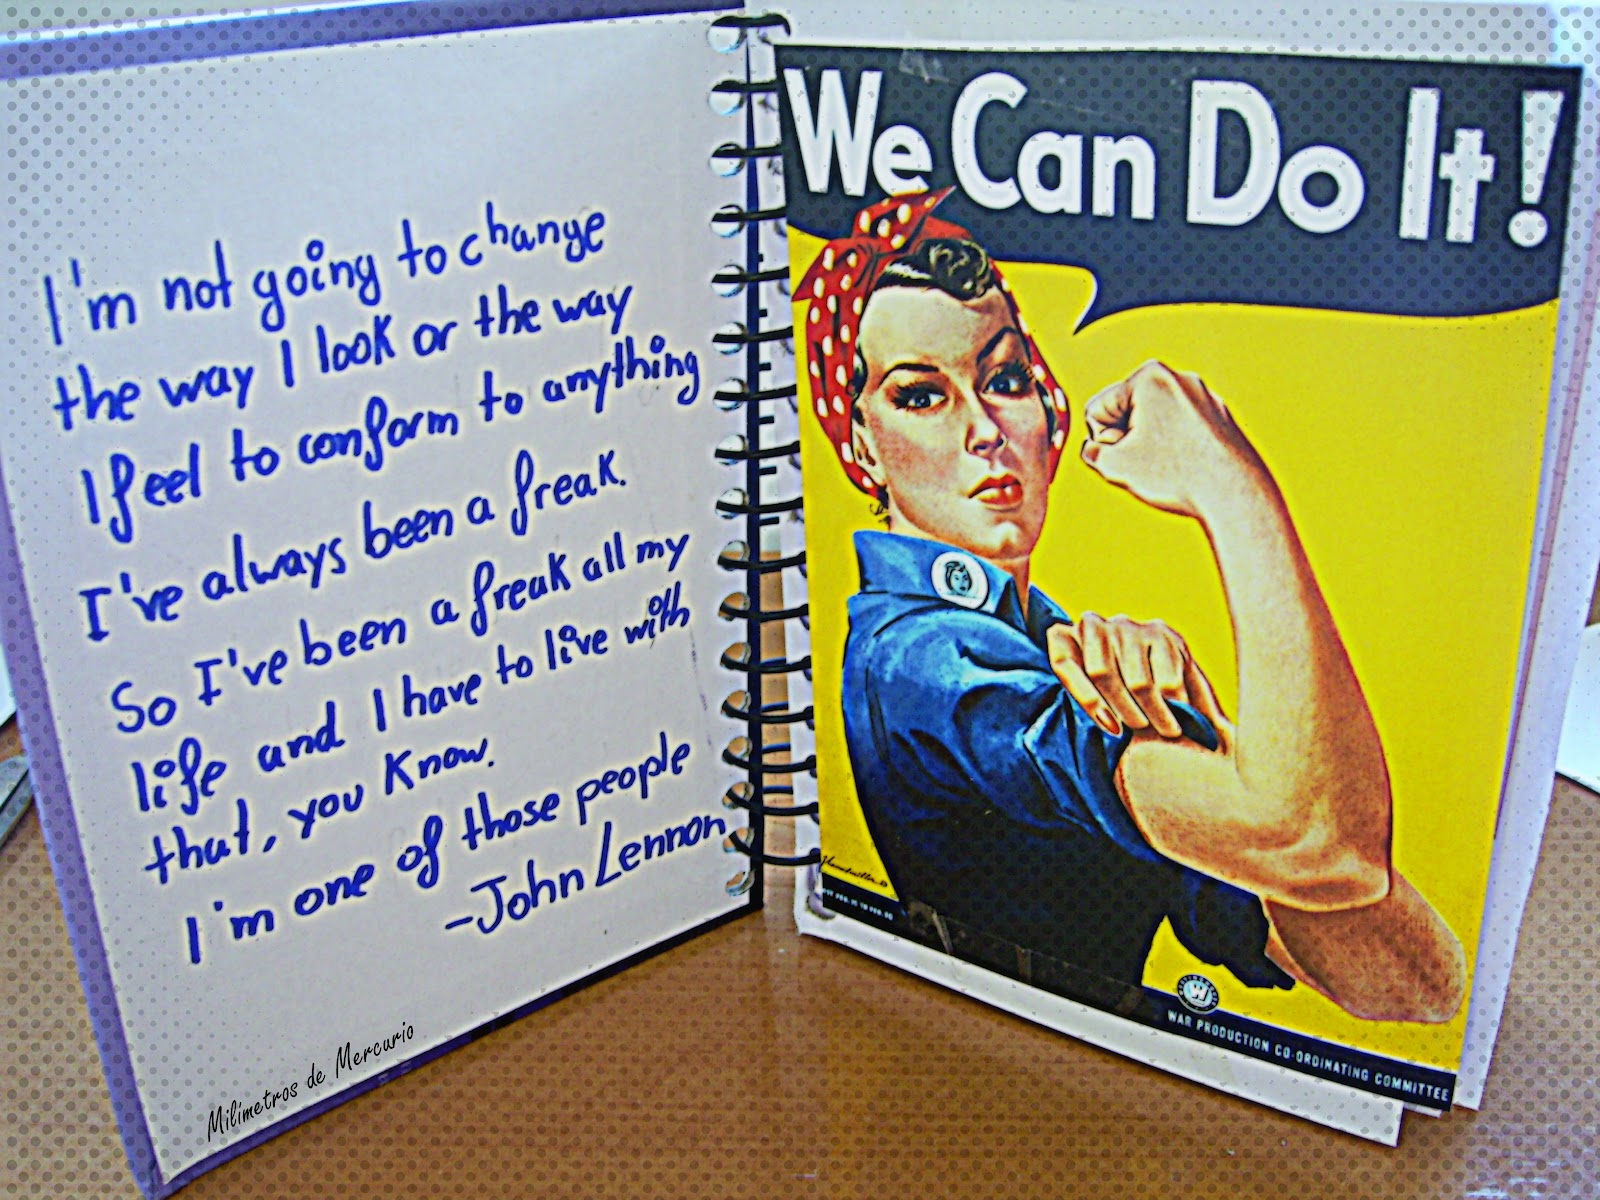 I'm not going to change
the way I look or the way
I feel to conform to anything
I've always been a freak.
So I've been a freak all my
life and I have to live with
that, you know.
I'm one of those people
-John Lennon
Milímetros de Mercurio
We Can Do It!
WAR PRODUCTION CO-ORDINATING COMMITTEE